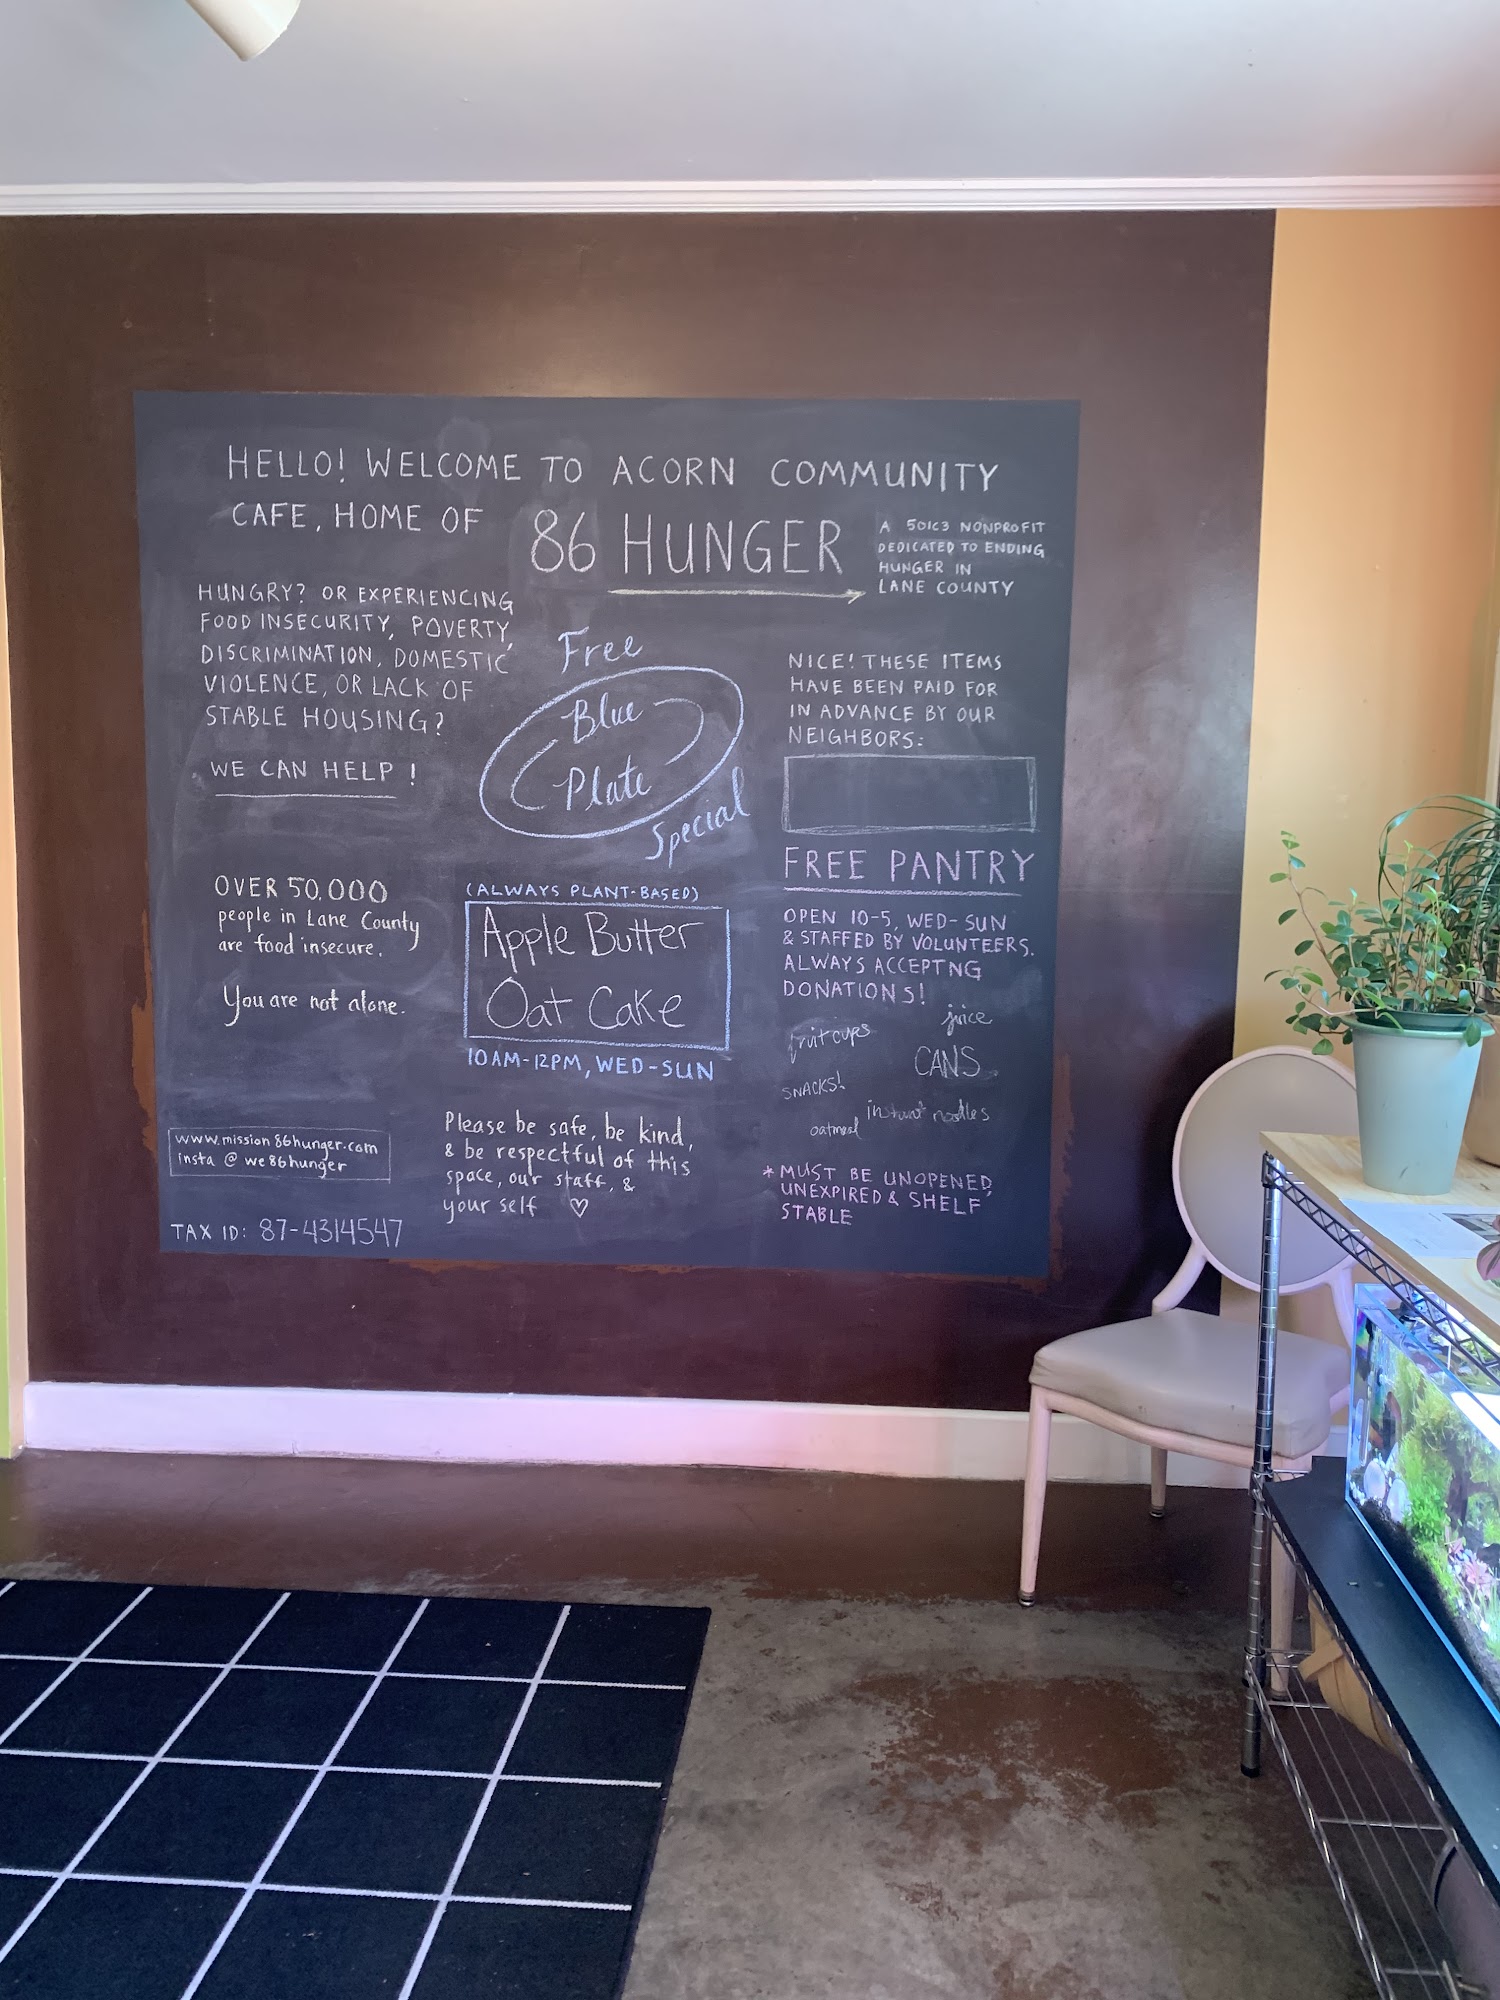 HELLO! WELCOME TO ACORN COMMUNITY
CAFE, HOME OF 86 HUNGER
A 501C3 NONPROFIT
DEDICATED TO ENDING
HUNGER IN
LANE COUNTY
HUNGRY? OR EXPERIENCING
FOOD INSECURITY, POVERTY,
DISCRIMINATION, DOMESTIC
VIOLENCE, OR LACK OF
STABLE HOUSING?
WE CAN HELP!
OVER 50,000
people in Lane County
are food insecure.
You are not alone.
www.mission86hunger.com
insta @ we86hunger
TAX ID: 87-4314547
Free
Blue
Plate
Special
(ALWAYS PLANT-BASED)
Apple Butter
Oat Cake
10AM-12PM, WED-SUN
Please be safe, be kind,
& be respectful of this
space, our staff, &
your self ♡
NICE! THESE ITEMS
HAVE BEEN PAID FOR
IN ADVANCE BY OUR
NEIGHBORS:
FREE PANTRY
OPEN 10-5, WED-SUN
& STAFFED BY VOLUNTEERS.
ALWAYS ACCEPTNG
DONATIONS!
juice
fruit cups
CANS
SNACKS!
instant noodles
oatmeal
*MUST BE UNOPENED,
UNEXPIRED & SHELF
STABLE